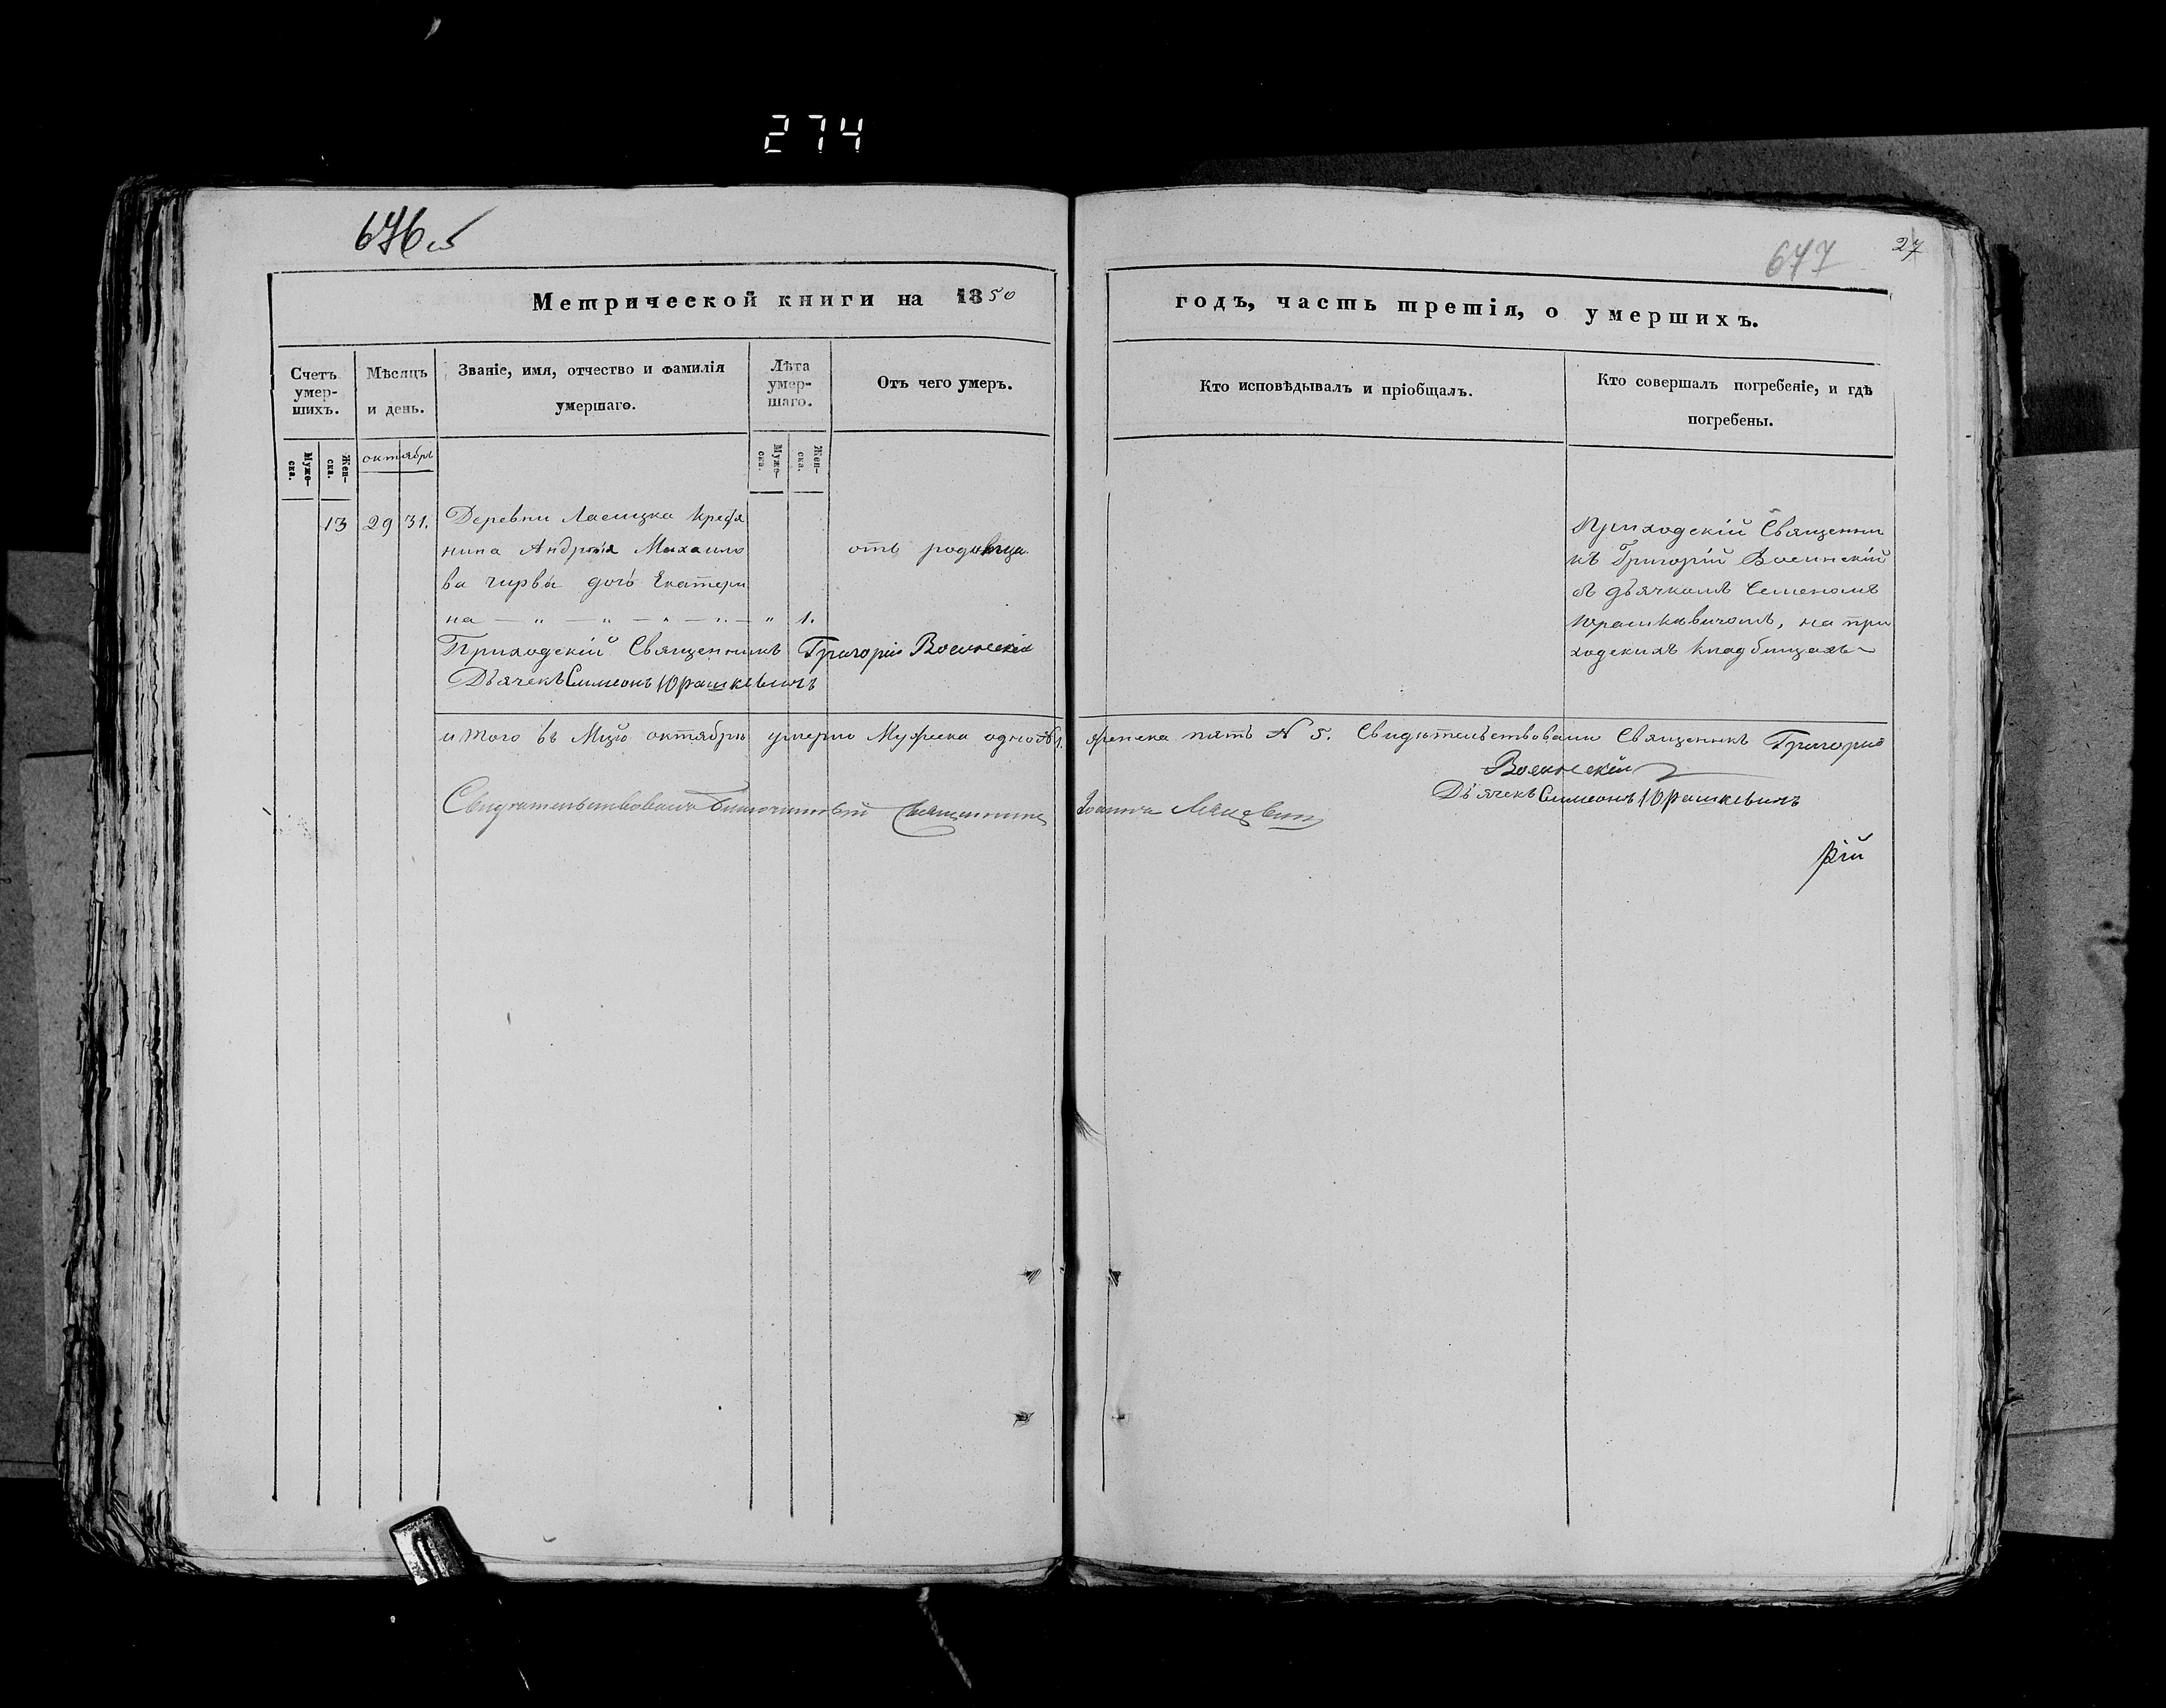 274
676 об
647
27
Метрической книги на 1850
годъ, часть третія, о умершихъ.
Счетъ умер-
шихъ.
Мѣсяцъ
и день.
Званіе, имя, отчество и фамилія
умершаго.
Лѣта
умер-
шаго.
Отъ чего умеръ.
Кто исповѣдывалъ и пріобщалъ.
Кто совершалъ погребеніе, и гдѣ
погребены.
Муже-
ска.
Жен-
ска.
октябрь
Муже-
ска.
Жен-
ска.
13 29 31. Деревни Ласицка
нина Андрея Михайло
ва дочь Екатери
на — „ — „ — „ — „ — „ 1.
отъ родимца
Приходскій Священни
къ Григорій
съ дьячкомъ Семеномъ
Юрашкевичомъ, на при
ходскихъ кладбищахъ
Приходскій Священникъ Григорій
Дьячекъ Симеонъ Юрашкевичъ
итого въ Мцѣ октябрѣ умерло Мужеска одно № 1.
женска пять № 5. Свидѣтельствовали Священикъ Григорій
Дьячекъ Симеонъ Юрашкевичъ
Свидѣтельствовалъ Благочинный Священникъ